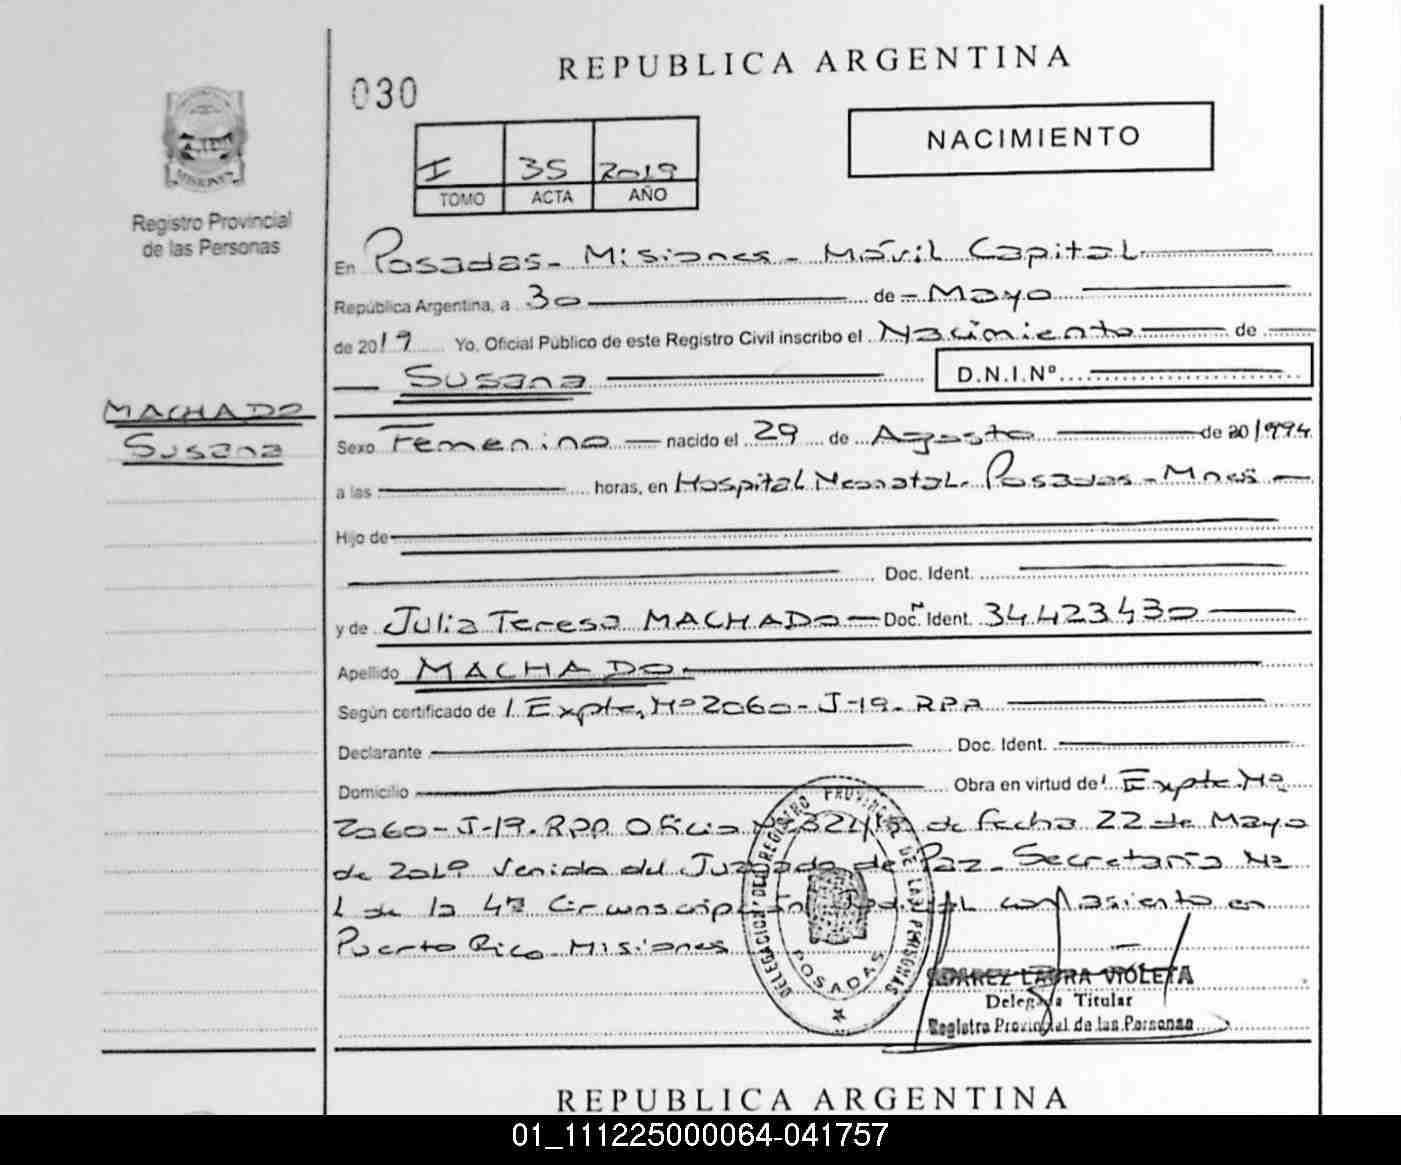 REPUBLICA ARGENTINA
030
NACIMIENTO
I 35 2019
TOMO ACTA AÑO
MISIONES
Registro Provincial
de las Personas
En Posadas - Misiones - Móvil Capital
República Argentina, a 30 de - Mayo
de 2019 Yo, Oficial Público de este Registro Civil inscribo el Nacimiento de
Susana D.N.I.Nº
MACHADO
Susana
Sexo Femenino nacido el 29 de Agosto de 20/994
a las horas, en Hospital Neonatal. Posadas - Mnes
Hijo de
Doc. Ident.
y de Julia Teresa MACHADO Doc. Ident. 34.423430
Apellido MACHADO
Según certificado de Expte. Nº 2060 - J-19. RPP
Declarante Doc. Ident.
Domicilio Obra en virtud de Expte. Nº
2060 - J-19. RPP Oficio de fecha 22 de Mayo
de 2019 venido del Juzgado de Paz - Secretaría Nº
1 de la 4ª Circunscripción Judicial con asiento en
Puerto Rico - Misiones
DELEGACION DEL REGISTRO PROVINCIAL DE LAS PERSONAS
POSADAS
SUAREZ LAURA VIOLETA
Delegada Titular
Registro Provincial de las Personas
REPUBLICA ARGENTINA
01_111225000064-041757